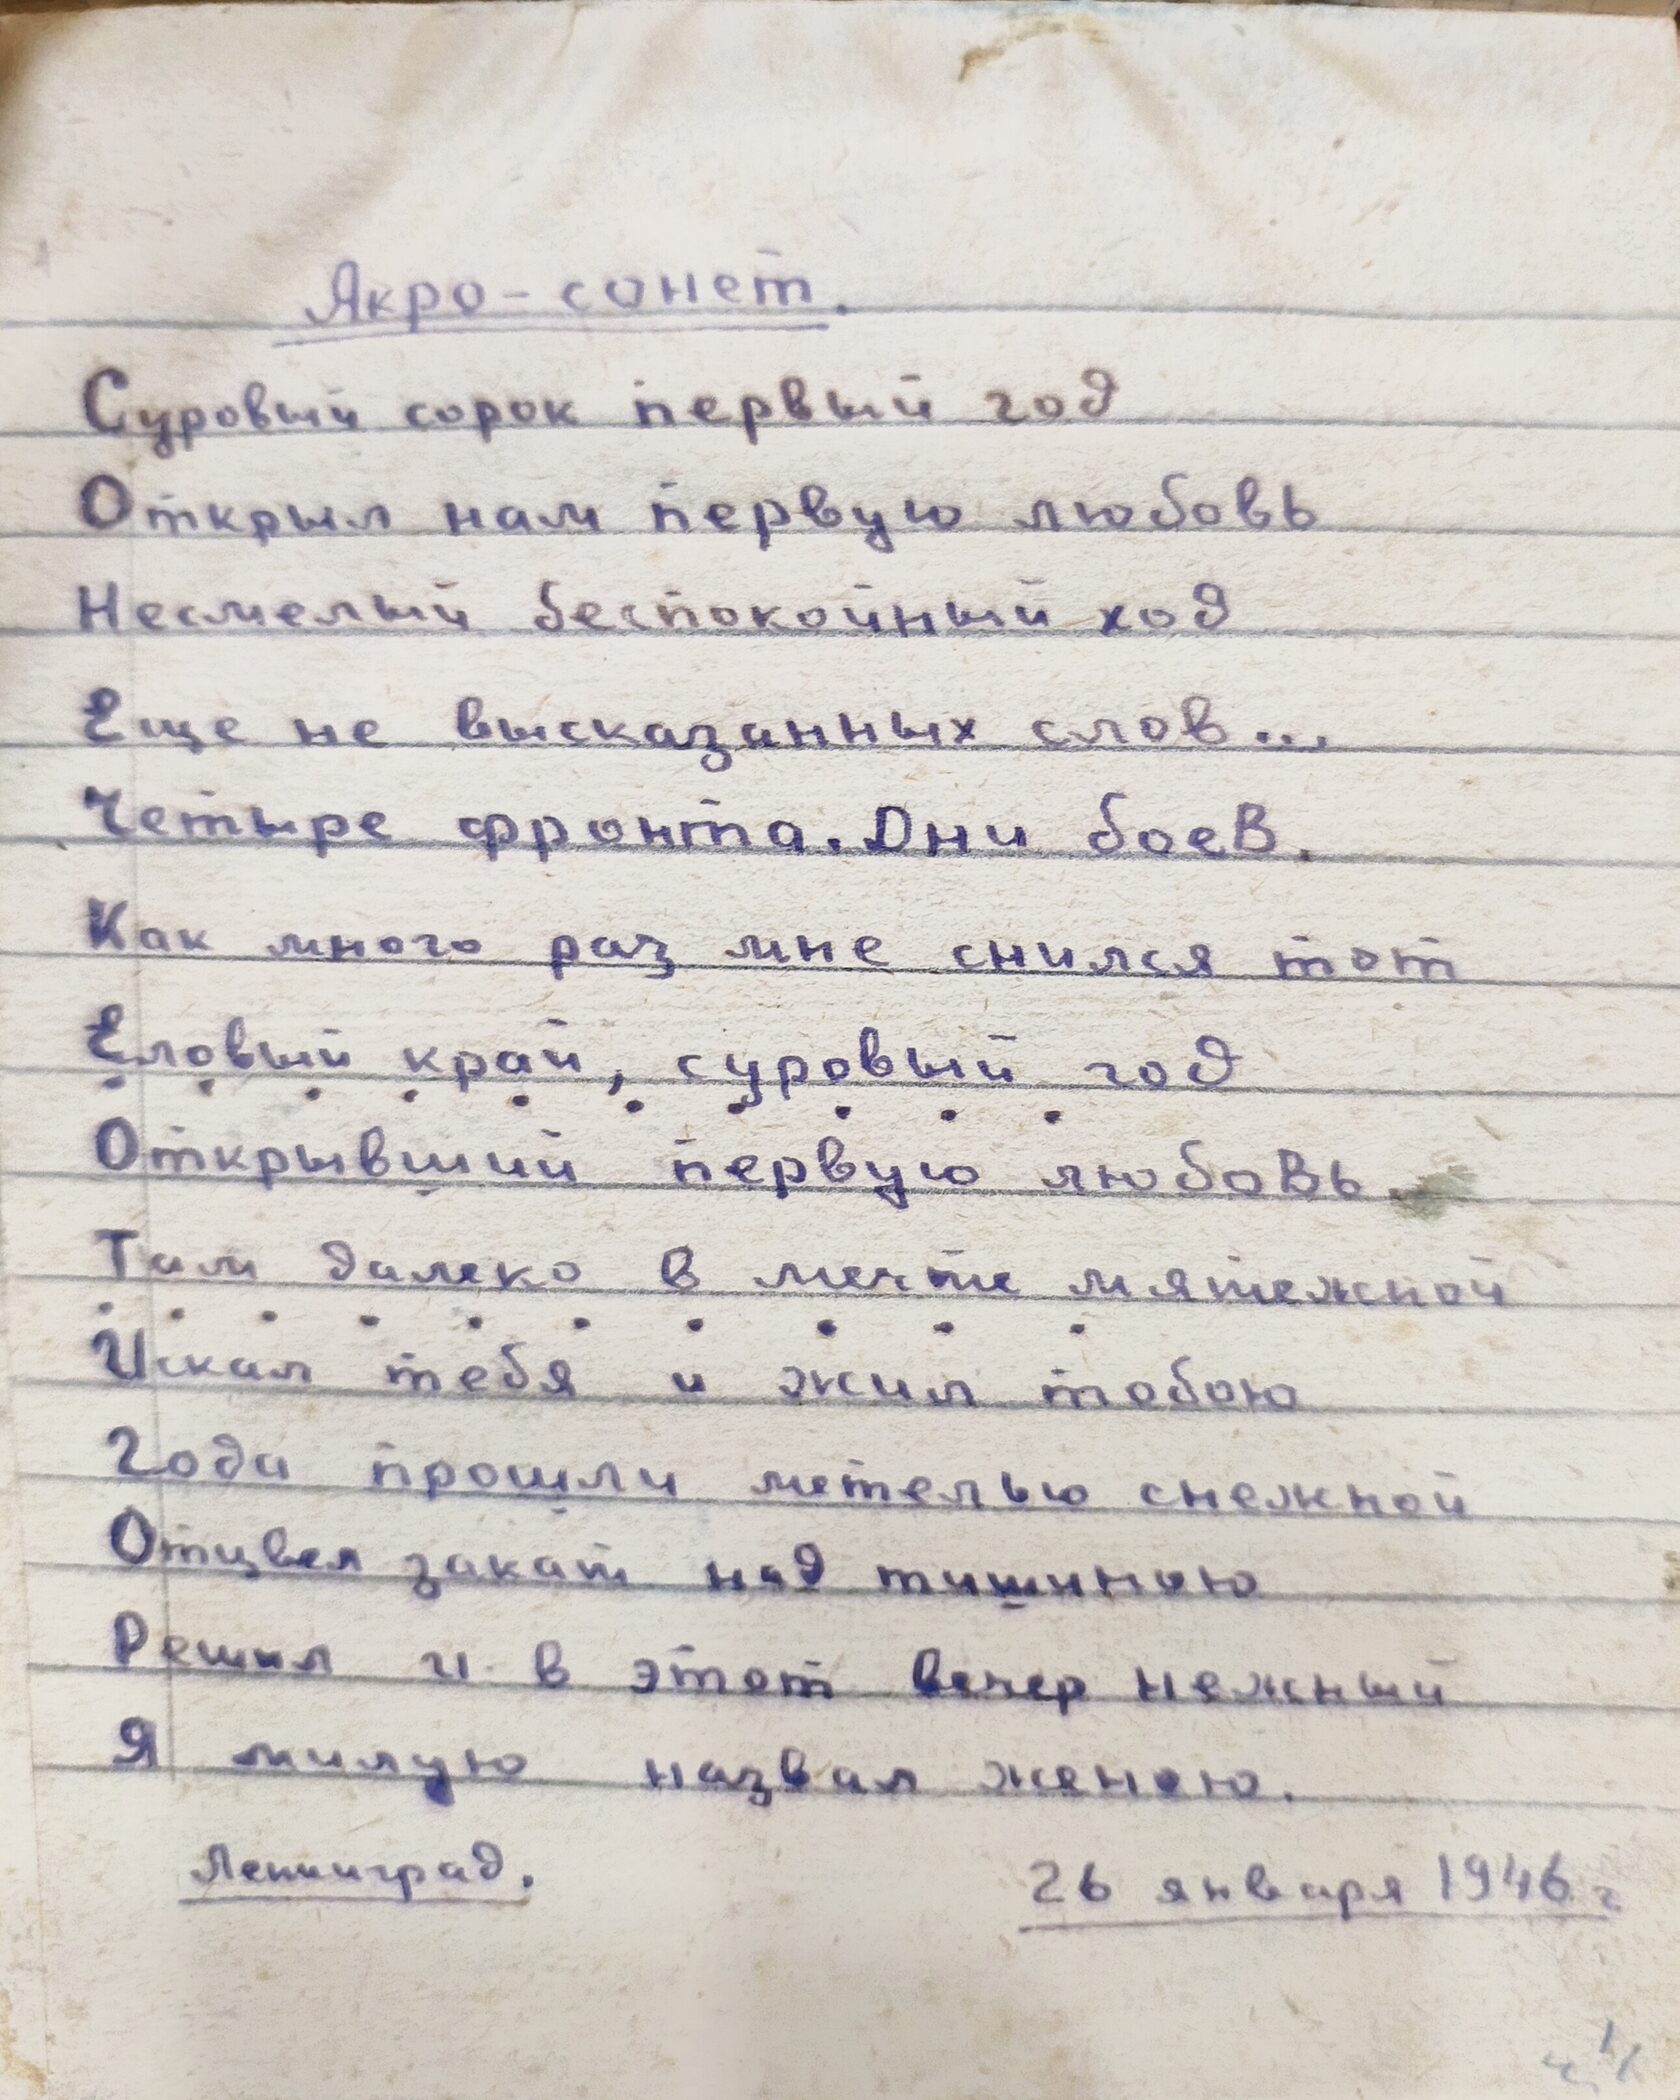 Акро-сонет.
Суровый сорок первый год
Открыл нам первую любовь
Несмелый беспокойный ход
Еще не высказанных слов...
Четыре фронта. Дни боев.
Как много раз мне снился тот
Еловый край, суровый год
. . . . . . . . . .
Открывший первую любовь.
Там далеко в мечте мятежной
. . . . . . . . . .
Искал тебя и жил тобою
Года прошли метелью снежной
Отцвел закат над тишиною
Решил и в этот вечер нежный
Я милую назвал женою.
Ленинград. 26 января 1946 г